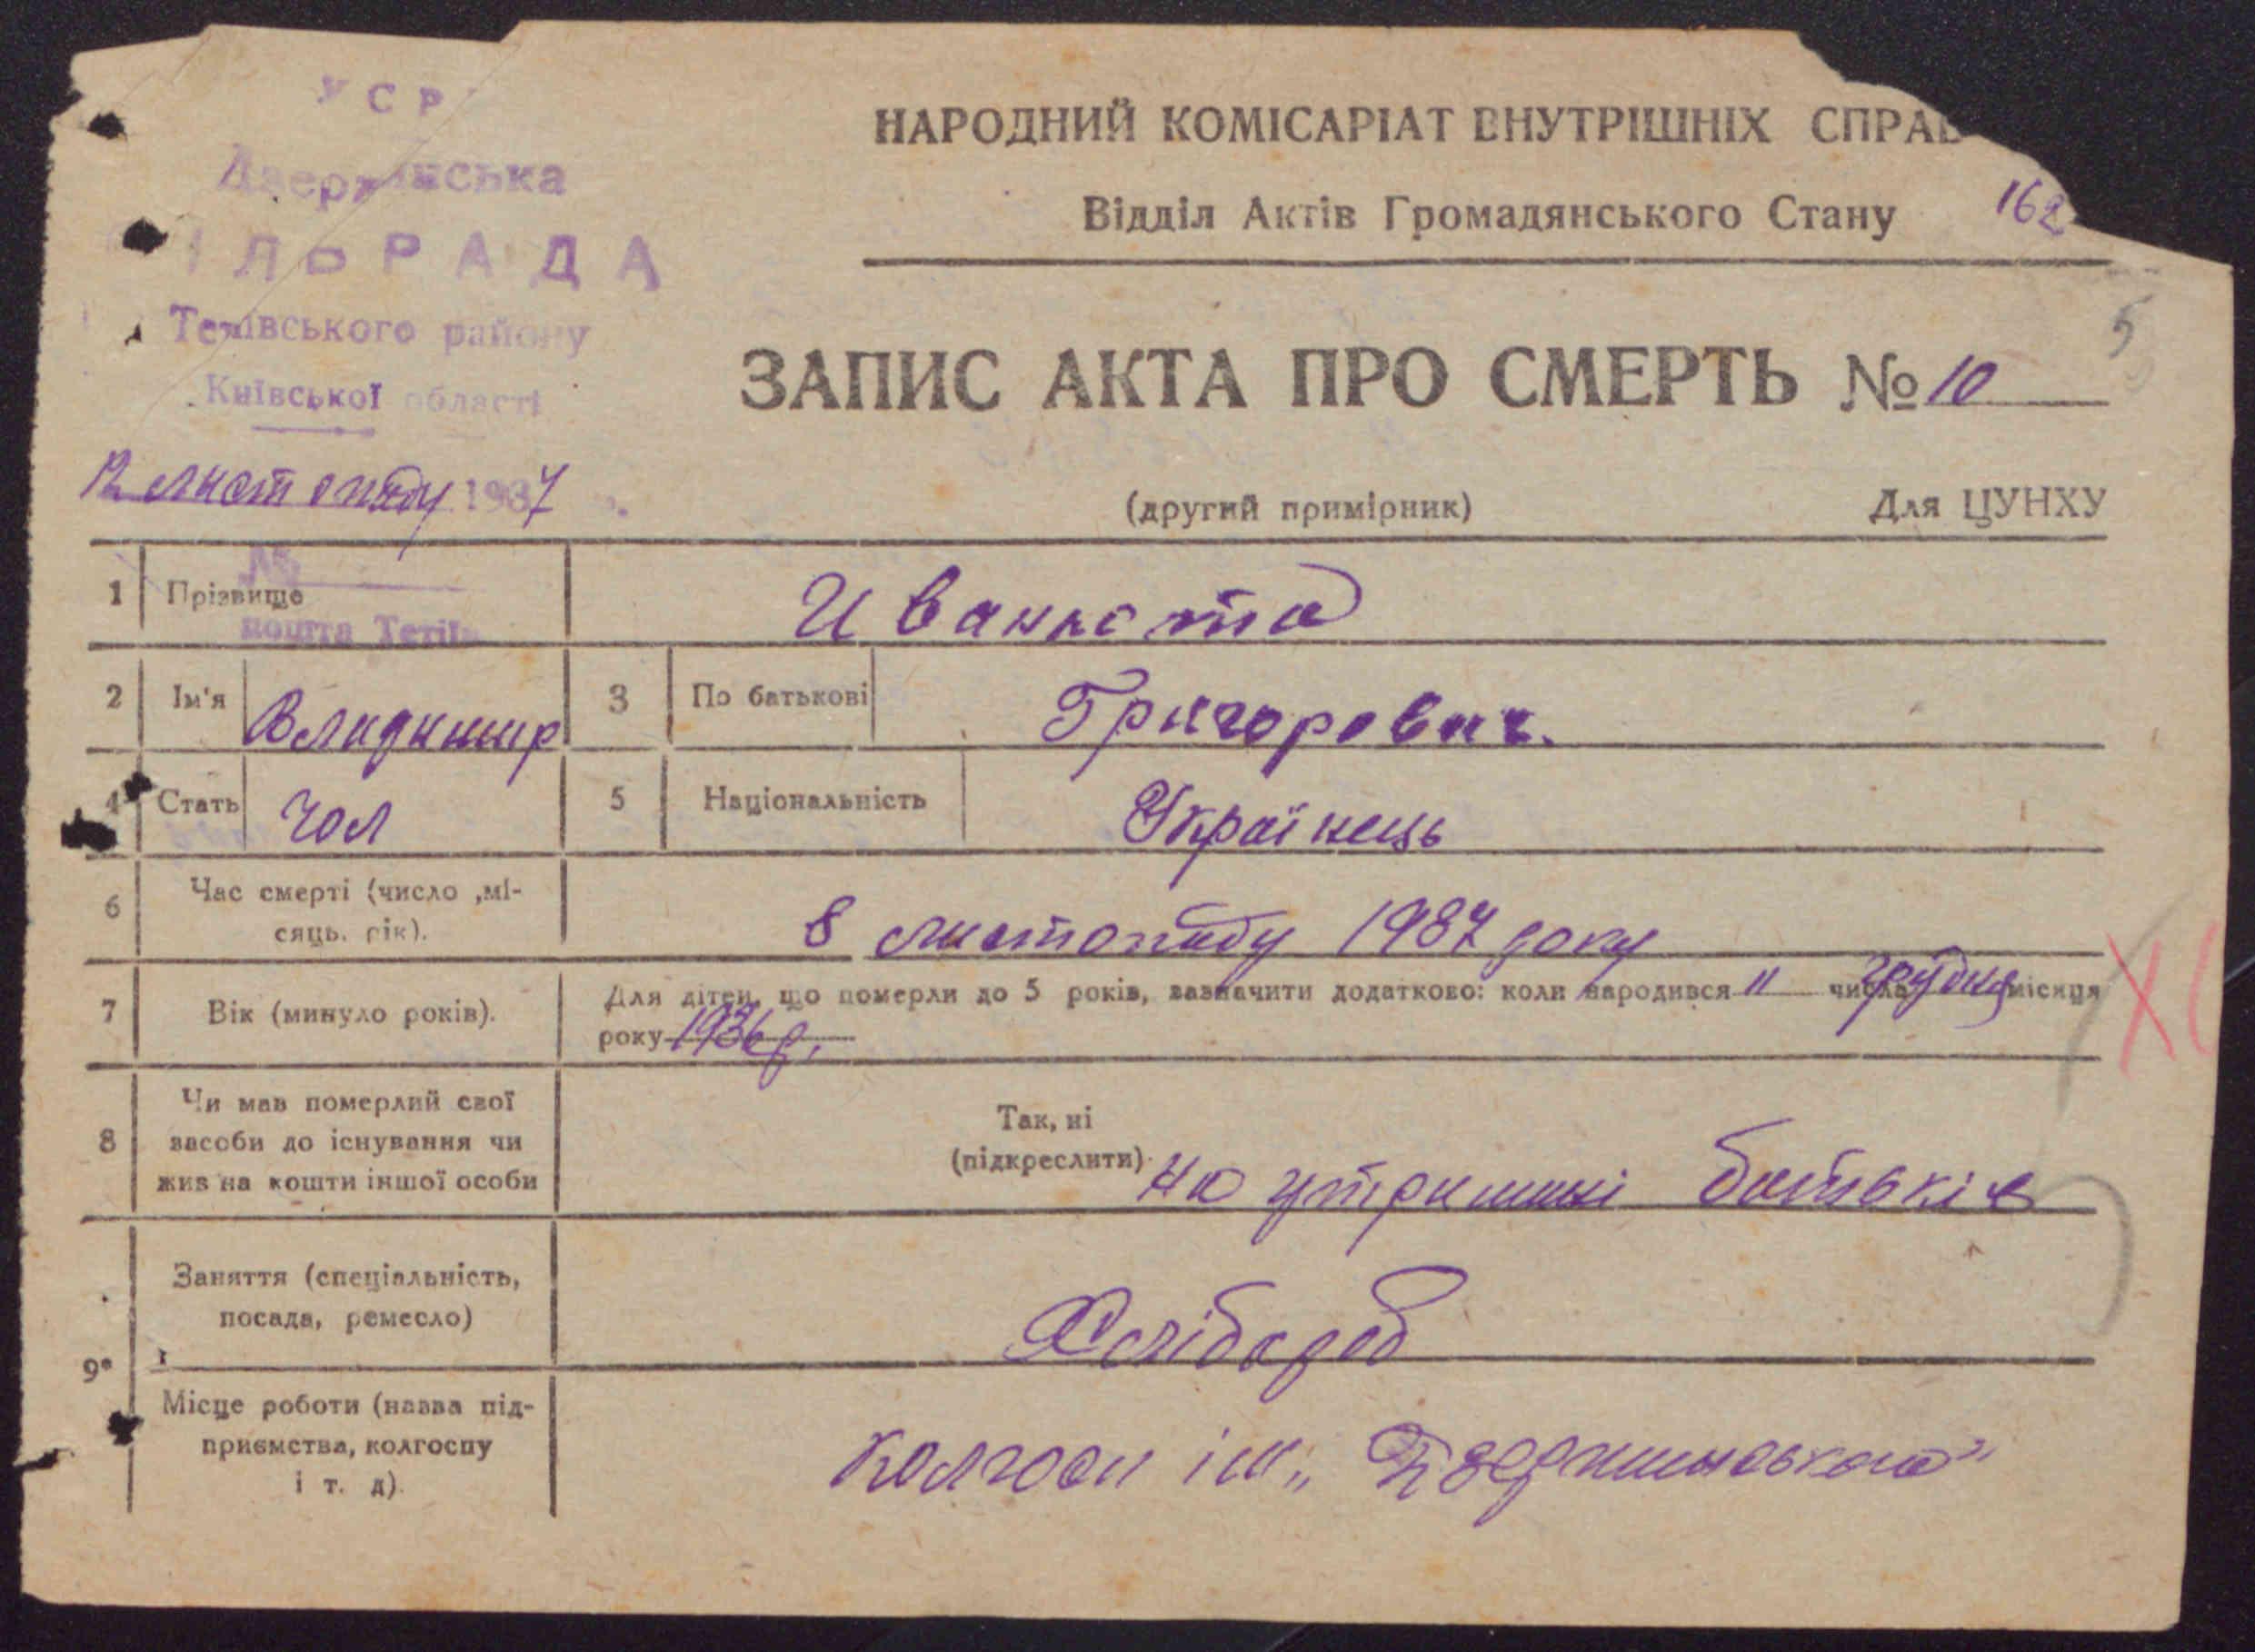 УСР
Дзержинська
СІЛЬРАДА
Тетіївського району
Київської області
12 листопаду 1937 р.
№
пошта Тетіїв
НАРОДНИЙ КОМІСАРІАТ ВНУТРІШНІХ СПРАВ
Відділ Актів Громадянського Стану
162
5
ЗАПИС АКТА ПРО СМЕРТЬ № 10
(другий примірник) Для ЦУНХУ
1 Прізвище
2 Ім'я Владимир 3 По батькові Григорович.
4 Стать Чол 5 Національність Українець
6 Час смерті (число ,мі-
сяць. рік).
8 листопаду 1937 року
7 Вік (минуло років).
Для дітей, що померли до 5 років, зазначити додатково: коли народився 11 числа грудня місяця
року 1936 р.
XI
8 Чи мав померлий свої
засоби до існування чи
жив на кошти іншої особи
Так, ні
(підкреслити). на утриманні батьків
9 Заняття (спеціальність,
посада, ремесло)
Хлібороб
Місце роботи (назва під-
приємства, колгоспу
і т. д).
Колгосп ім. „Дзержинського"